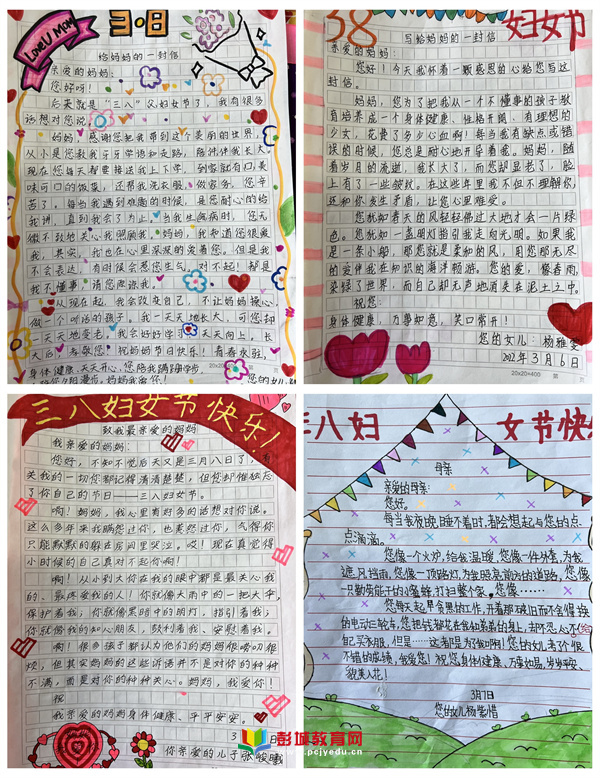 LOVEU MOM
3·8日
给妈妈的一封信
亲爱的妈妈:
您好呀!
后天就是“三八”妇女节了,我有很多
话想对您说。
妈妈,感谢您把我带到这个美丽的世界,
从小是您教我牙牙学语和走路,陪伴我长大。
现在您每天都要接送我上下学,到家就有口美
味可口的饭菜,还帮我洗衣服,做家务。您辛
苦了,每当我遇到难题的时候,是您耐心的给
我讲,直到我会了为止,当我生病时,您无
微不致地关心我照顾我。妈妈,我知道您很爱
我,其实,我也在心里深深的爱着您,但是我
不会表达,有时候会惹您生气,对不起!都是
我不懂事,请您原谅我。
从现在起,我会改变自己,不让妈妈操心,
做一个听话的孩子。我一天天地长大,可您却
一天天地变老,我会好好学习,天天向上,长
大后,孝敬您!祝妈妈节日快乐!青春永驻,
身体健康、天天开心,
您的女儿
38
妇女节
写给妈妈的一封信
亲爱的妈妈:
您好!今天我怀着一颗感恩的心给您写这
封信。
妈妈,您为了把我从一个不懂事的孩子教
育培养成一个身体健康、性格开朗、有理想的
少女,花费了多少心血啊!每当我有缺点或错
误的时候,您总是耐心地开导着我。妈妈,随
着岁月的流逝,我长大了,而您却显老了,脸
上有了一些皱纹。在这些年里我不但不理解你,
还和你发生矛盾,让您心里难受。
您犹如春天的风轻轻佛过大地才会一片绿
色。您犹如一盏明灯指引我走向光明。如果我
是一条小船,那您就是柔和的风,用您那无尽
的爱伴我在知识的海洋畅游。您的爱,像春雨,
染绿了世界,而自己却无声地消失在泥土之中。
祝您:
身体健康,万事如意,笑口常开!
您的女儿:杨雅雯
2022年3月6日
20×20=400
三八妇女节快乐!
致我最亲爱的妈妈
我亲爱的妈妈:
您好,不知不觉后天又是三月八日了,有
关我的一切你都记得清清楚楚,但您却惟独忘
了你自己的节日——三八妇女节。
啊!妈妈,我心里有好多的话想对你说。
这么多年来我瞒怨过你,也美怨过你,气得你
只能默默的躲在房间里哭泣。哎!现在真觉得
小时候的自己真对不起你啊!
啊!从小到大你在我的眼中都是最关心我
的、最疼爱我的人!你就像大雨中的一把大伞,
保护着我;你就像黑暗中的明灯。指引着我;
你就像我的知心朋友,鼓利着我、安慰着我。
啊!很多孩子都认为他们的妈妈很唠叨很
烦,但其实妈妈的这些诉语并不是对你的种种
不满,而是对你的种种关心。妈妈,我爱你!
祝
我亲爱的妈妈身体健康、平平安安。
你亲爱的儿子张峻曦
三八妇
女节快
母亲
亲爱的母亲:
您好。
每当我夜晚睡不着时,都会想起与您的点
点滴滴。
您像一个火炉,给我温暖,您像一件外套,为我
遮风挡雨,您像一顶路灯,为我照亮前方的道路,您像
一只勤劳能干的小蜜蜂,打扫整个家。您像······
您每天起早贪黑的工作,开着那破旧而又会慢拨
的电动三轮车,您把钱都花在我和弟弟的身上,却不忍心给
自己买衣服,但是······这都是为了我们啊!您的女儿考了个很
不错的成绩,我爱您!祝您身体健康,万事如意,岁岁平安、
貌美人花!
3月7日
您的女儿杨紫惜
彭城教育网
www.pcjyedu.cn